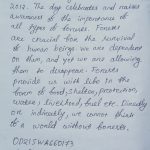 2012. The day celebrates and raises
awareness of the importance of
all types of forests. Forests
are crucial for the survival
of human beings we are dependent
on them, and yet we are allowing
them to disappear. Forests
provide us with life in the
form of food, shelter, protection,
water, livelihood, fuel etc. Directly
or indirectly, we cannot think
to a world without forests.